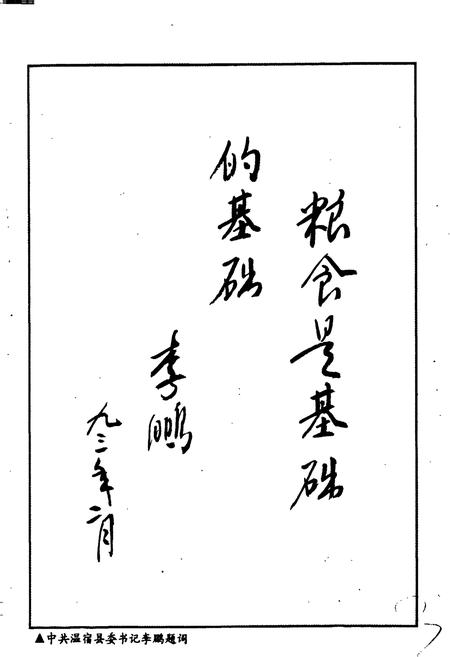 粮食是基础
的基础
李鹏
九三年二月
▲中共温宿县委书记李鹏题词